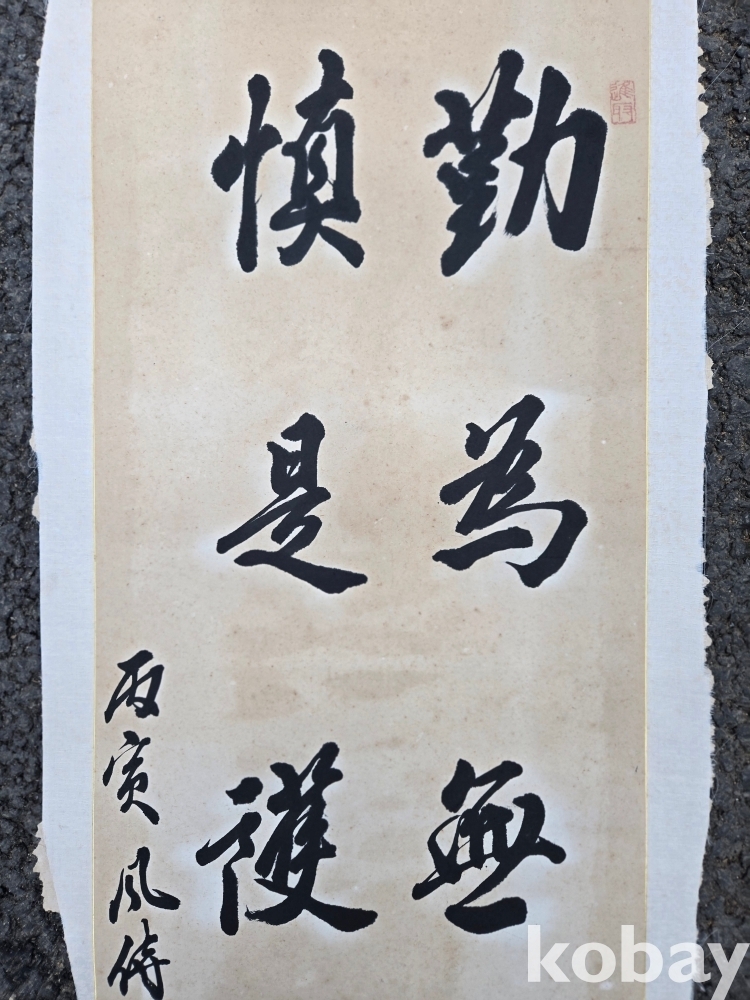 勤為無
慎是護
丙寅 風
kobay